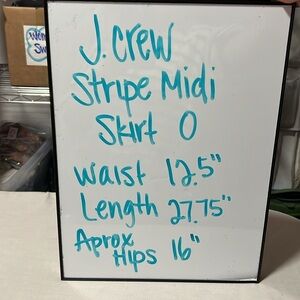 J. Crew
Stripe Midi
Skirt 0
Waist 12.5"
Length 27.75"
Aprox
Hips 16"